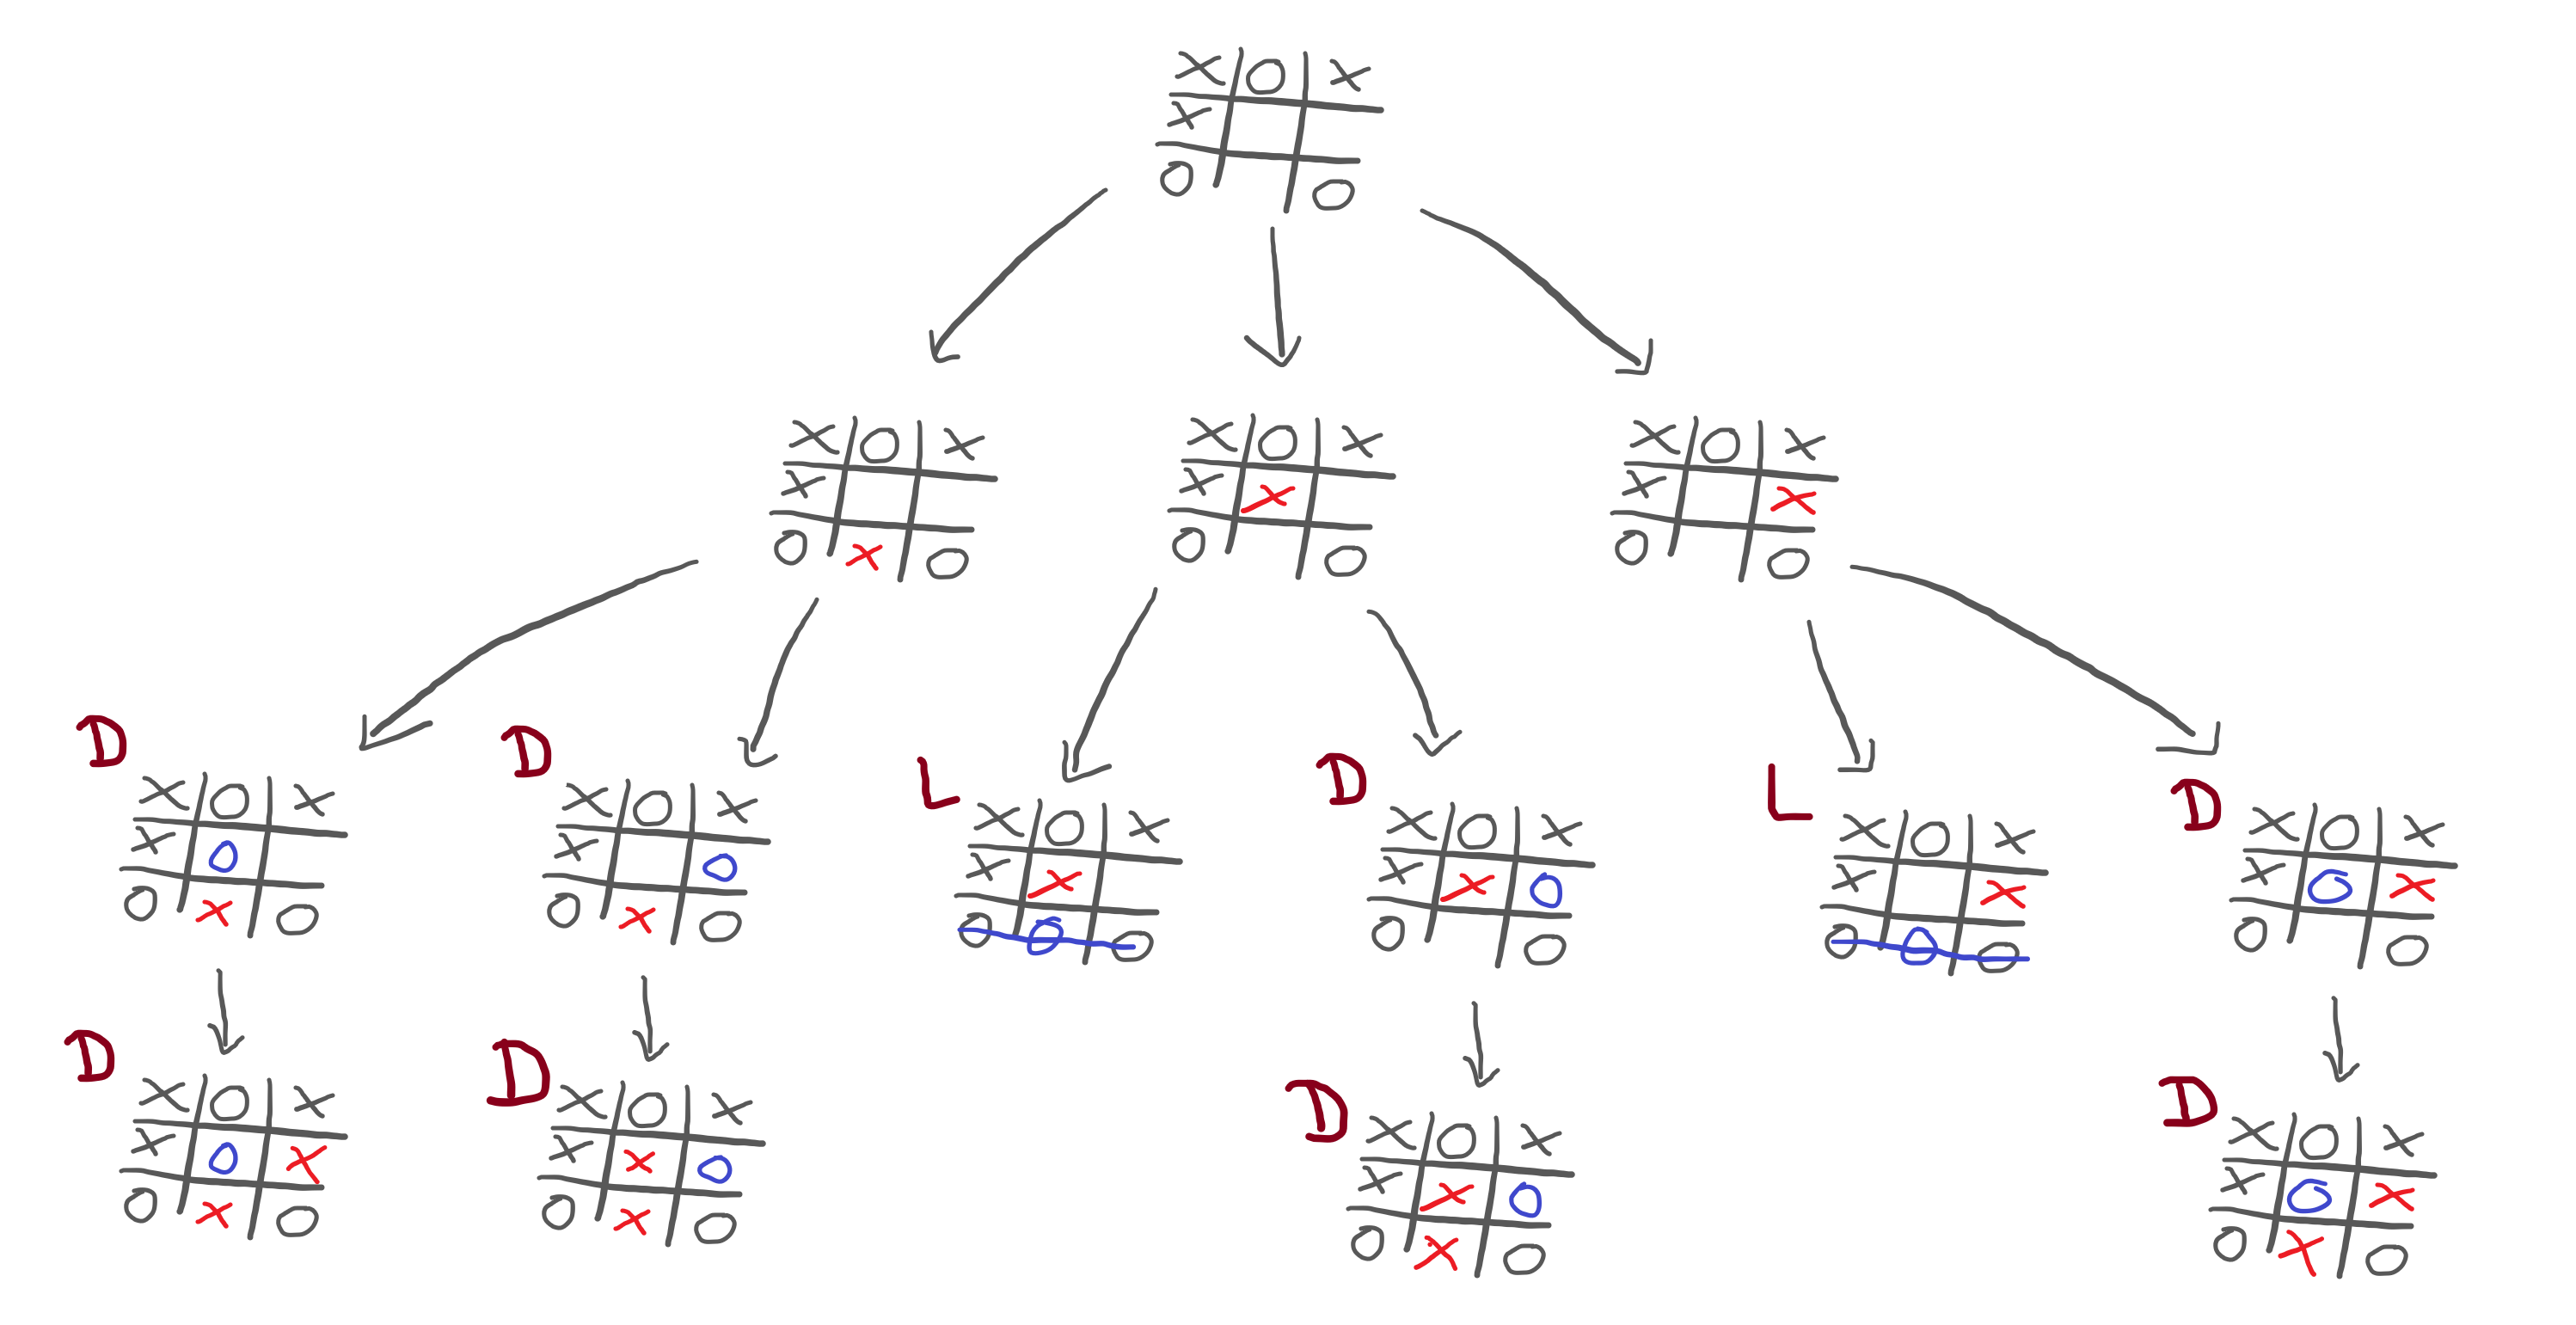 X O X
X
O O
X O X
X
O X O
X O X
X X
O O
X O X
X X
O O
D
X O X
X O
O X O
D
X O X
X O
O X O
L
X O X
X X
O O O
D
X O X
X X O
O O
L
X O X
X X
O O O
D
X O X
X O X
O O
D
X O X
X O X
O X O
D
X O X
X X O
O X O
D
X O X
X X O
O X O
D
X O X
X O X
O X O